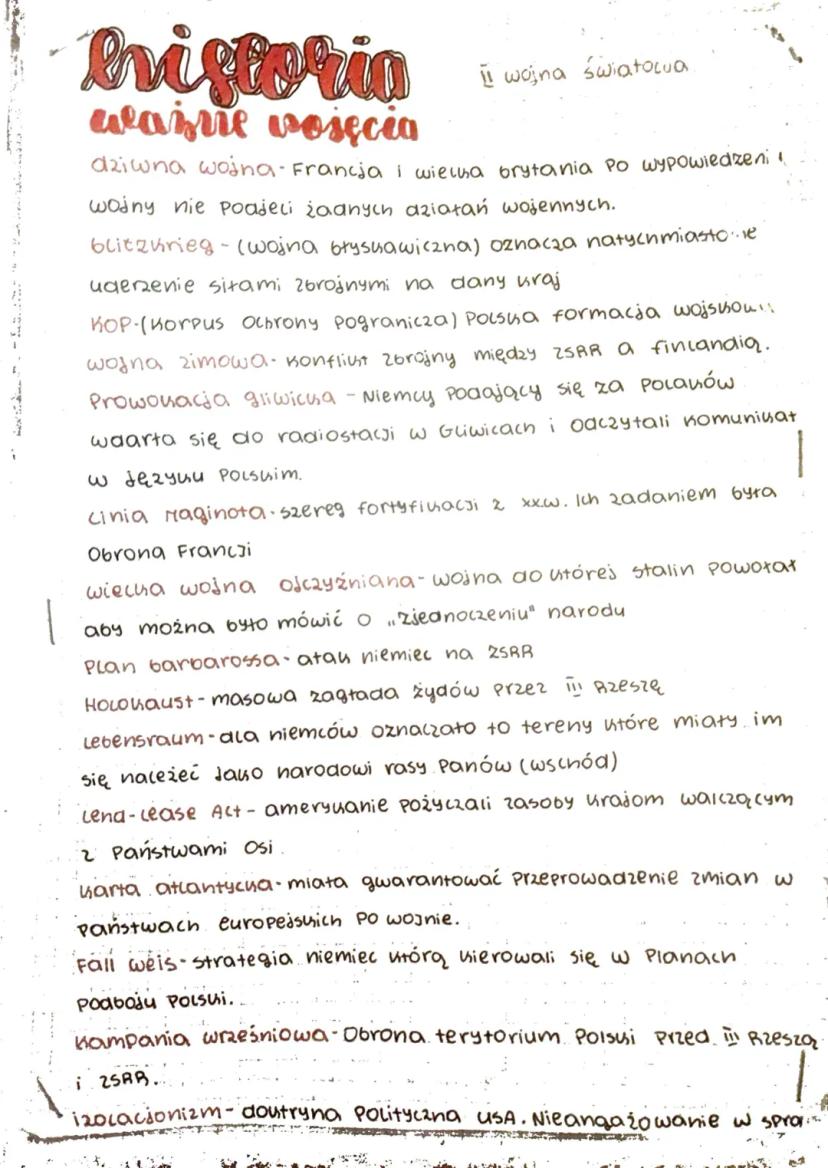 historia
II wojna światowa
ważne pojęcia
dziwna wojna - Francja i wielka brytania po wypowiedzeni
wojny nie podjeli żadnych działań wojennych.
blitzkrieg - (wojna błyskawiczna) oznacza
uderzenie siłami zbrojnymi na dany kraj
KOP - (Korpus Ochrony Pogranicza) Polska formacja
wojna zimowa - konflikt zbrojny między ZSRR a finlandią.
Prowokacja gliwicka - Niemcy podający się za polaków
wdarła się do radiostacji w Gliwicach i odczytali komunikat
w języku polskim.
Linia Maginota - szereg fortyfikacji z xx.w. Ich zadaniem była
Obrona Francji
wielka wojna ojczyźniana - wojna do której stalin powołał
aby można było mówić o „zjednoczeniu" narodu
Plan barbarossa - atak niemiec na ZSRR
Holokaust - masowa zagłada żydów przez III Rzeszę
Lebensraum - dla niemców oznaczało to tereny które miały im
się należeć jako narodowi rasy panów (wschód)
Lend-Lease Act - amerykanie pożyczali zasoby krajom walczącym
z Państwami Osi.
karta atlantycka - miała gwarantować przeprowadzenie zmian w
państwach europejskich po wojnie.
Fall weis - strategia niemiec którą kierowali się w planach
podboju Polski.
kampania wrześniowa - Obrona terytorium Polski przed III Rzeszą
i ZSRR.
izolacjonizm - doktryna polityczna USA. Nieangażowanie w